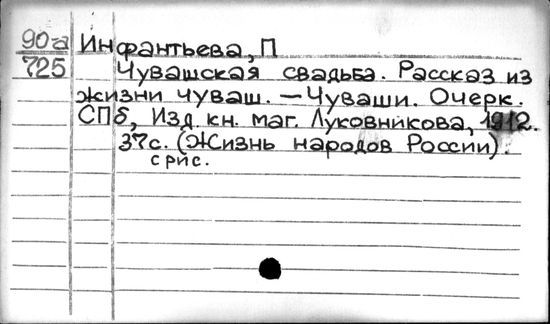 90-а Инфантьева, П
725 Чувашская свадьба. Рассказ из
жизни чуваш. — Чуваши. Очерк.
СПб, Изд. кн. маг. Луковникова, 1912.
37с. (Жизнь народов России).
с рис.